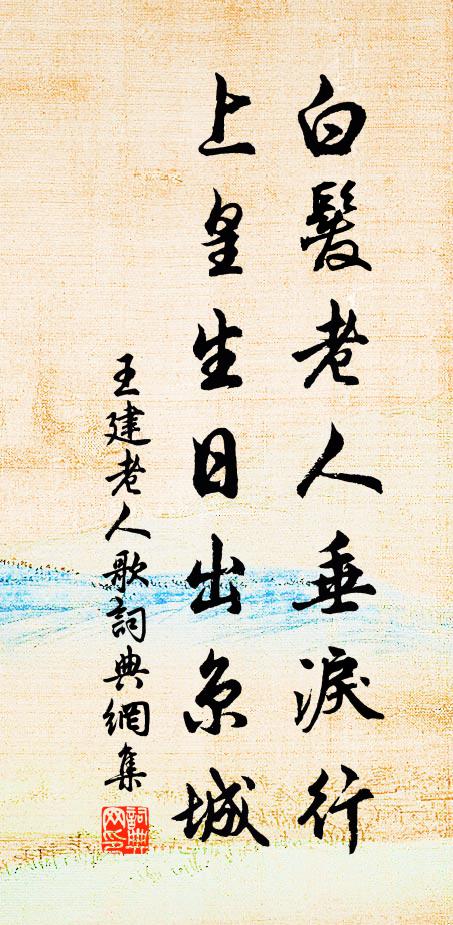 白髮老人垂淚行
上皇生日出京城
王建老人歌詞典網集
詞典網印